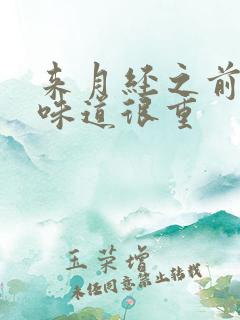 来月经之前
味道很重
玉荣增
未经同意禁止转载